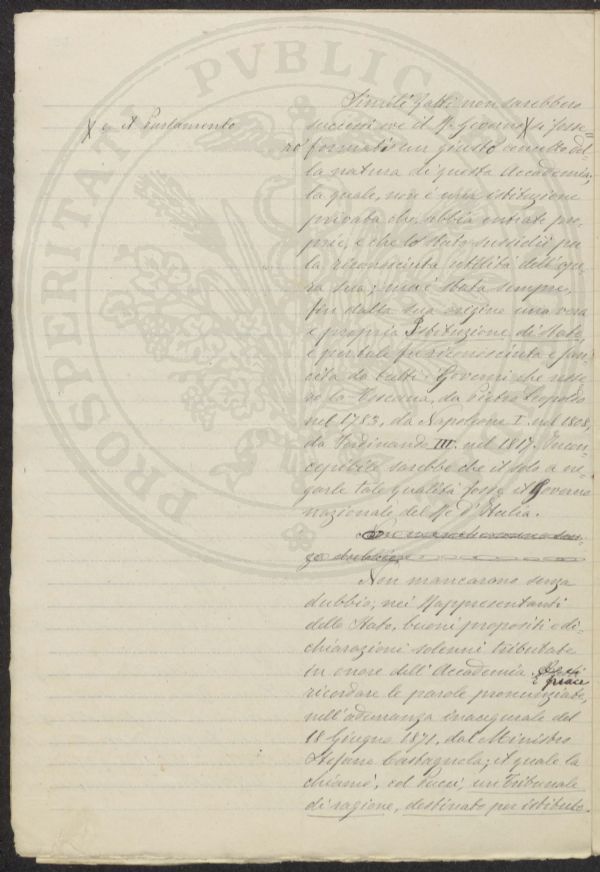 PROSPERITATI PVBLICAE
Simili fatti non sarebbero
X e il Parlamento
successi ove il R. Governo X si fosse
ro formati un giusto concetto del-
la natura di questa Accademia;
la quale, non è una istituzione
privata che abbia entrate pro-
prie, e che lo Stato sussidii per
la riconosciuta utilità dell'ope-
ra sua; ma è stata sempre,
fin dalla sua origine una vera
e propria Istituzione di Stato,
e per tale fu riconosciuta e san-
cita da tutti i Governi che resse-
ro la Toscana, da Pietro Leopoldo
nel 1783, da Napoleone I. nel 1808,
da Ferdinando III. nel 1817. Incon-
cepibile sarebbe che il solo a ne-
garle tale qualità fosse il Governo
nazionale del Re d'Italia.
Non mancheranno sen-
za dubbio
Non mancarono senza
dubbio, nei Rappresentanti
dello Stato, buoni propositi e di-
chiarazioni solenni tributate
in onore dell'Accademia.
piace
ricordare le parole pronunziate,
nell'adunanza inaugurale del
18 Giugno 1871, dal Ministro
Stefano Castagnola; il quale la
chiamò, col Pucci, un Tribunale
di ragione, destinato per istituto